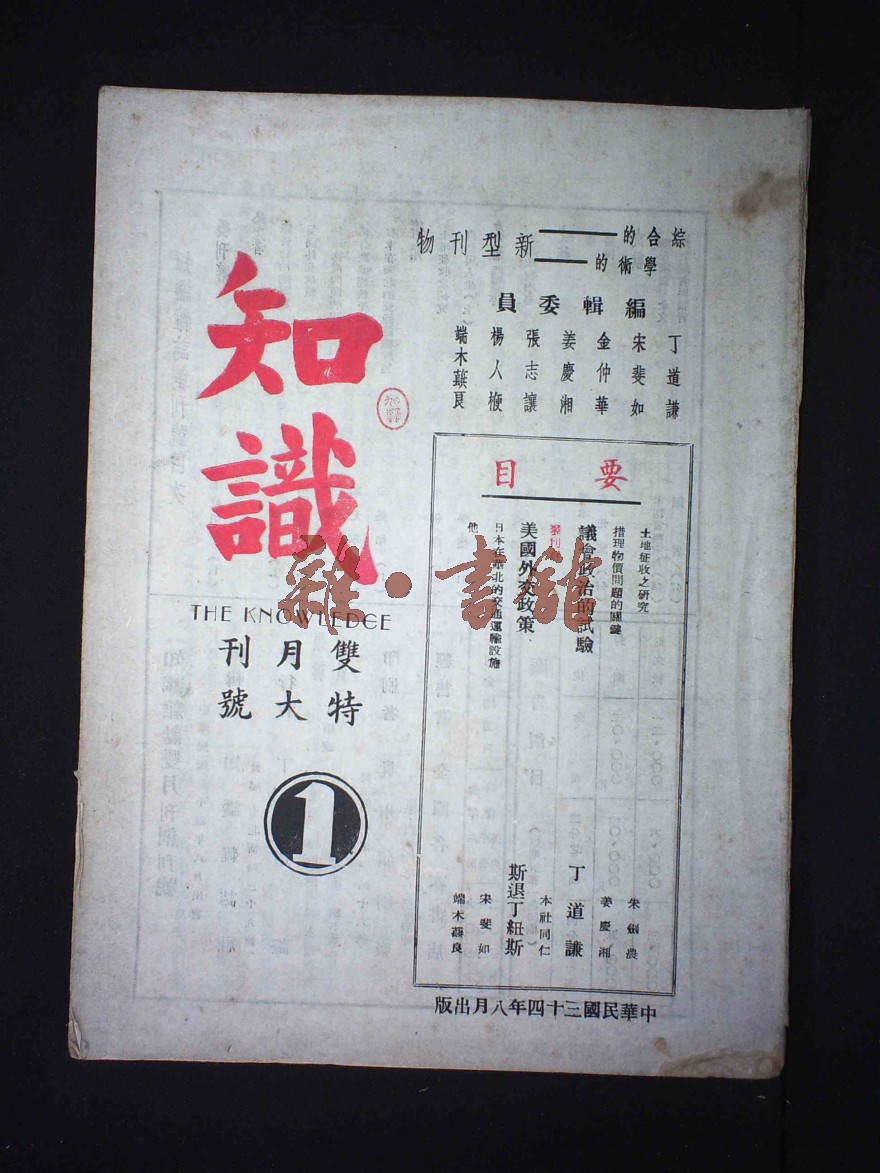 綜合的
學術的
新型刊物
編輯委員
丁道謙
宋斐如
金仲華
姜慶湘
張志讓
楊人楩
端木蕻良
知識
THE KNOWLEDGE
雙月刊
特大號
1
要目
土地征收之研究 朱劍農
措理物價問題的關鍵 姜慶湘
議會政治的試驗 丁道謙
發刊 本社同仁
美國外交政策 斯退丁紐斯
日本在華北的交通運輸設施 宋斐如
他 端木蕻良
中華民國三十四年八月出版
雜·書館